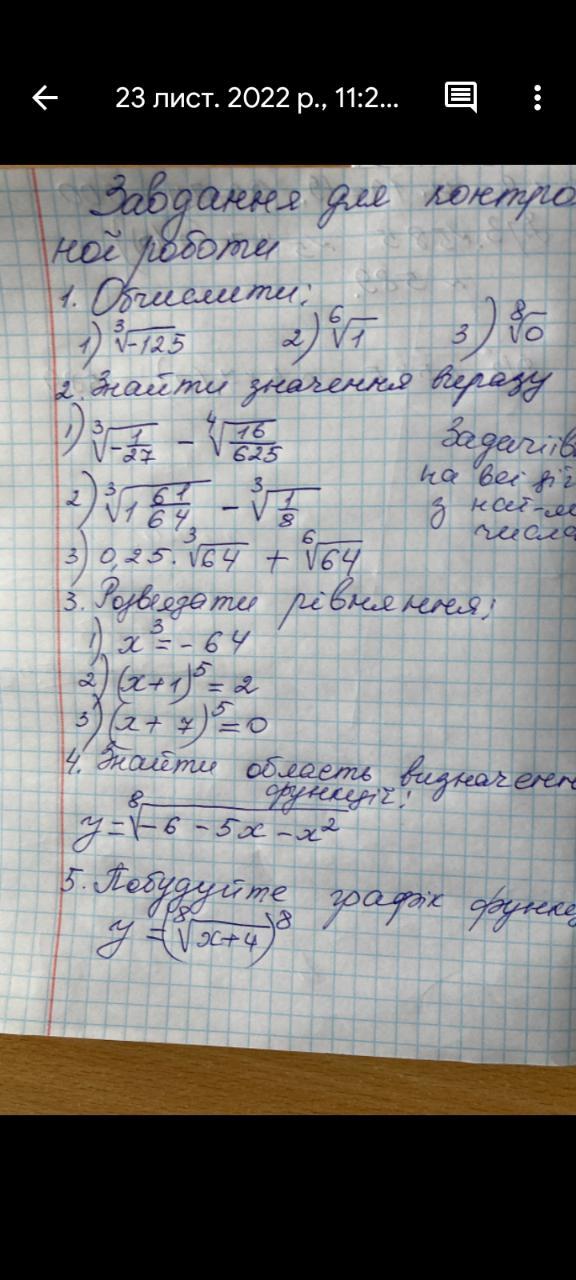 23 лист. 2022 р., 11:2...
Завдання для контро
ної роботи
1. Обчислити:
1) ∛-125 2) ⁶√1 3) ⁸√0
2. Знайти значення виразу
1) ∛-1/27 - ⁴√16/625
Задачі
на всі
2) ∛1 61/64 - ∛1/8
з
числа
3) 0,25 · ∛64 + ⁶√64
3. Розв'язати рівняння:
1) x³ = -64
2) (x+1)⁵ = 2
3) (x + 7)⁵ = 0
4. Знайти область визначенн
функції:
y = ⁸√-6 - 5x - x²
5. Побудуйте графік функц
y = (⁸√x+4)⁸